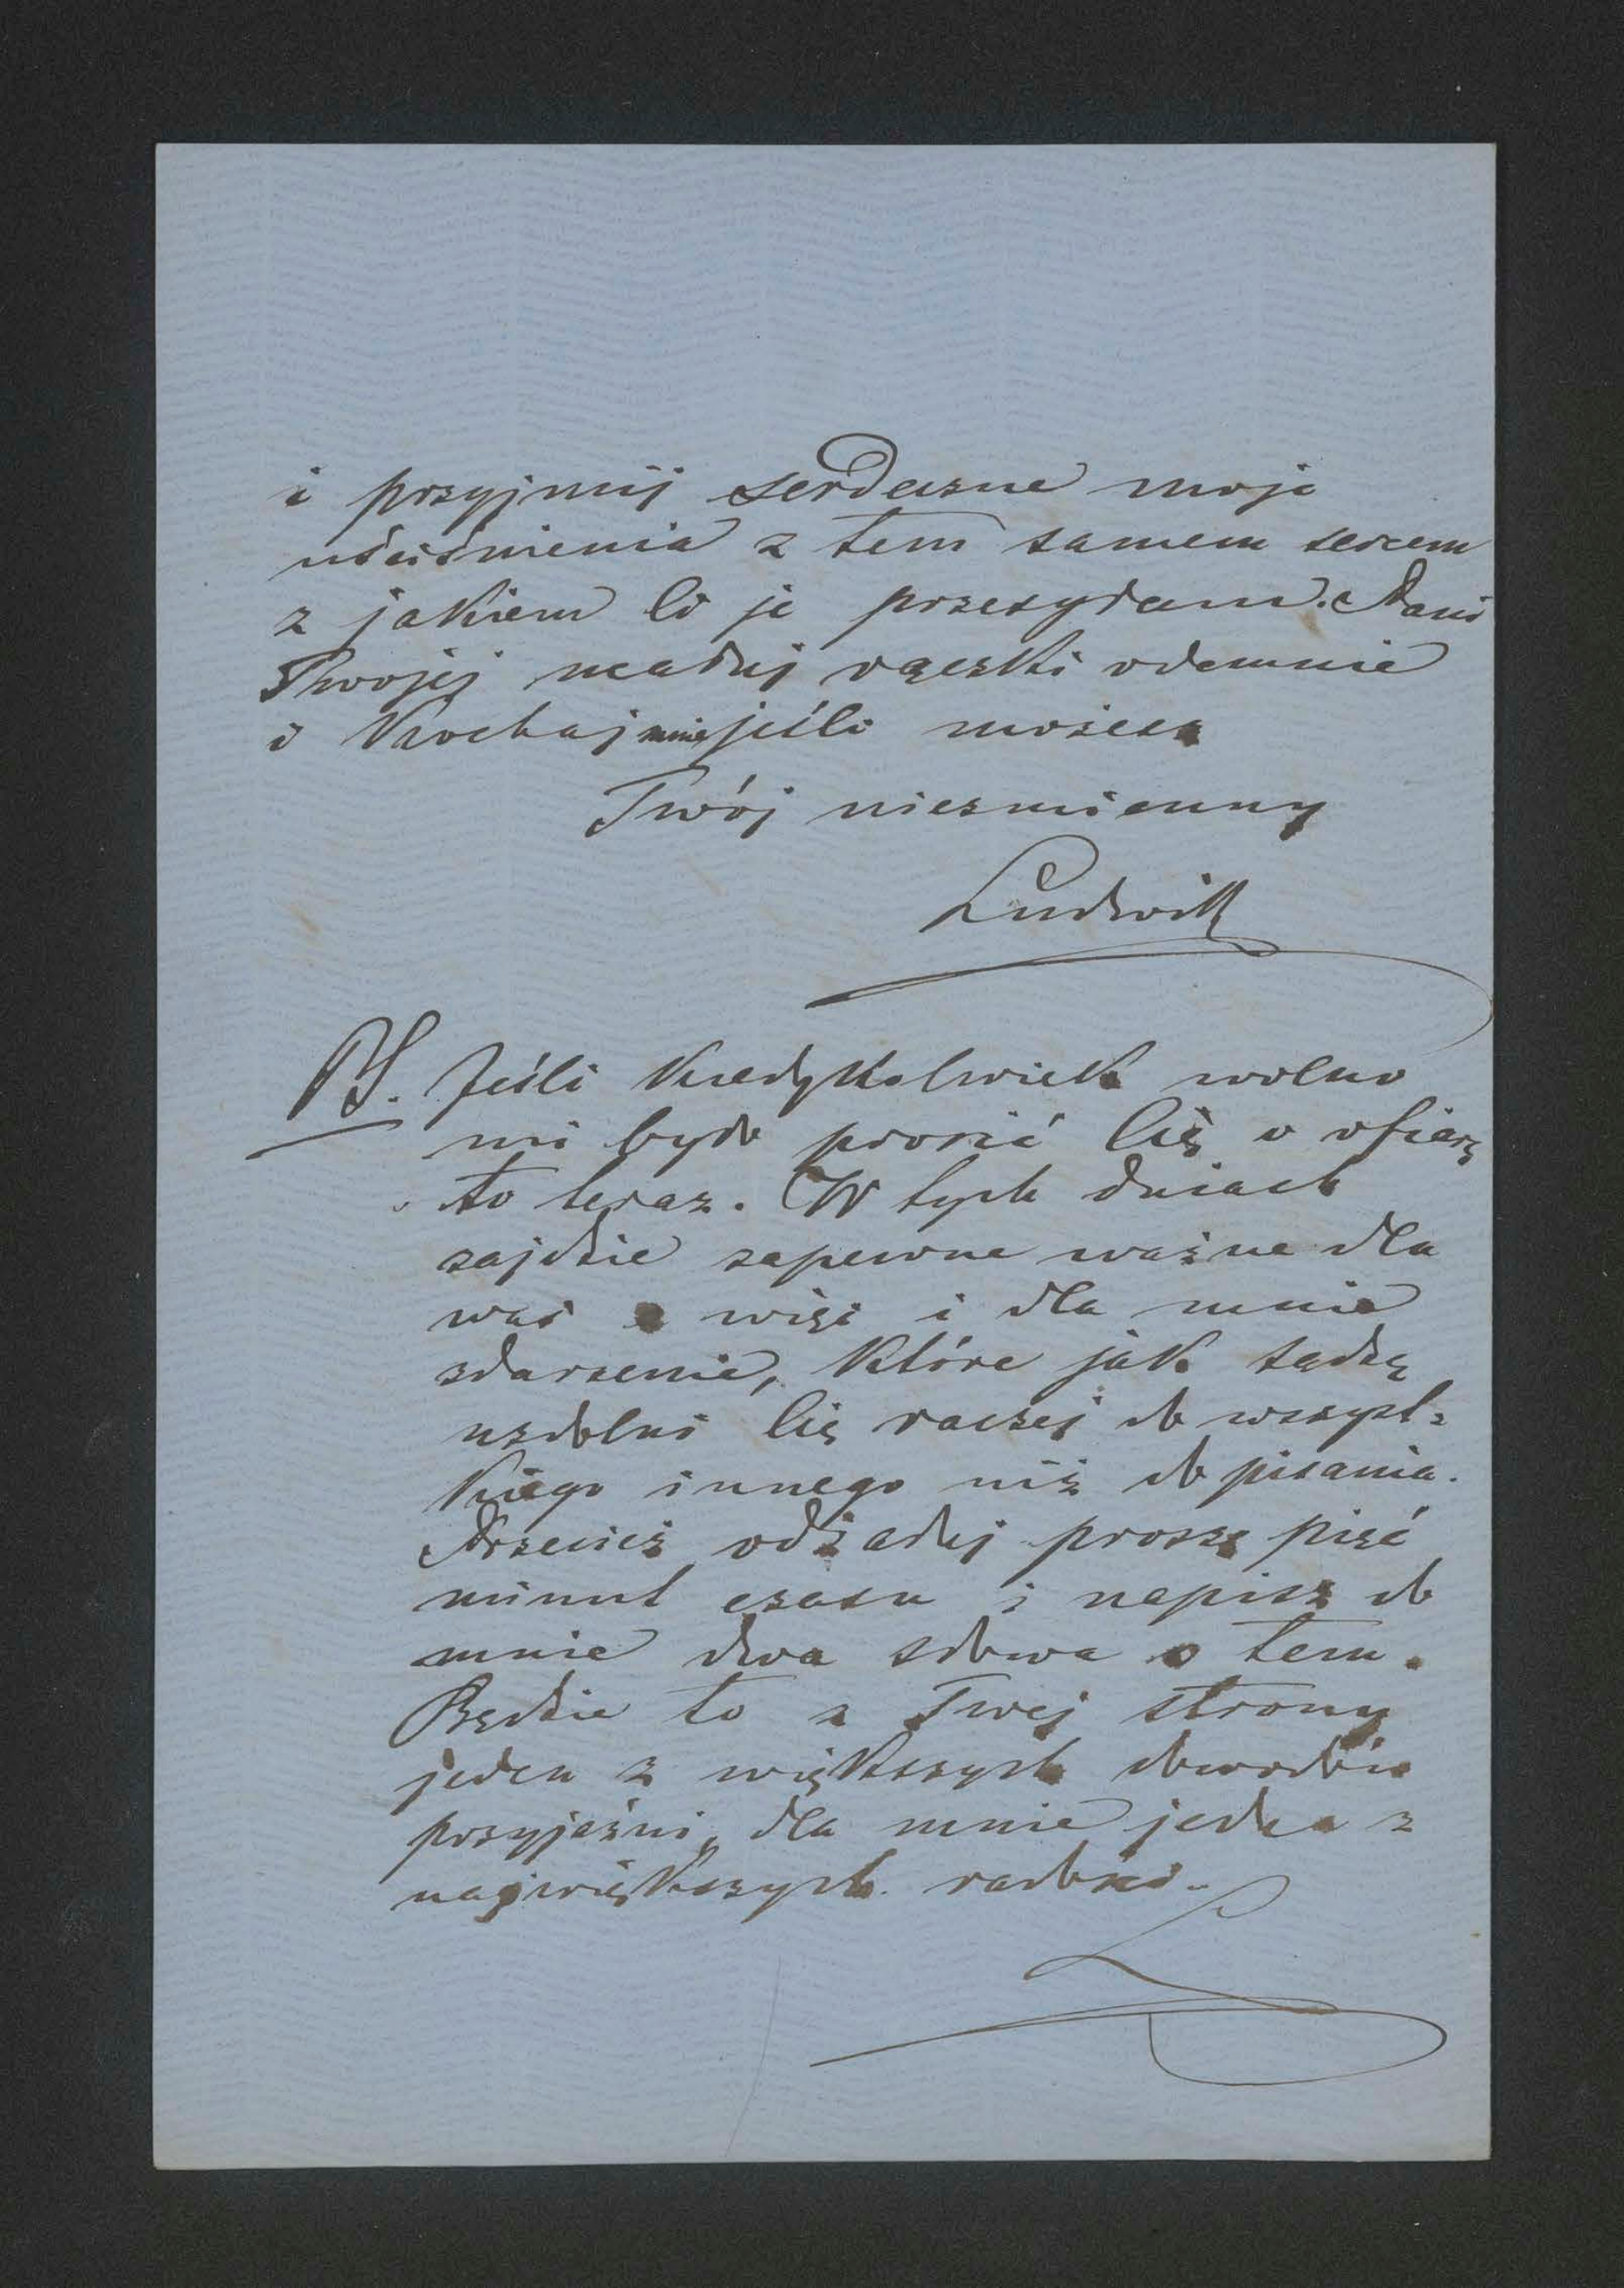 i przyjmij serdeczne moje
uściśnienia z tem samem sercem
z jakiem Ci je przesyłam. Pani
Twojej ucałuj rączki odemnie
i Kochaj mnie jeśli możesz
Twój niezmienny
Ludwik
PS. Jeśli Kiedykolwiek wolno
mi było prosić Cię o ofiarę
to teraz. W tych dniach
zajdzie zapewne ważne dla
was a więc i dla mnie
zdarzenie, Które jak sądzę
uzdolni Cię raczej do wszyst=
kiego innego niż do pisania.
Przecież odżałuj proszę pięć
minut czasu i napisz do
mnie dwa słowa o tem.
Będzie to z Twej strony
jeden z większych dowodów
przyjaźni, dla mnie jedna z
największych radości.
L